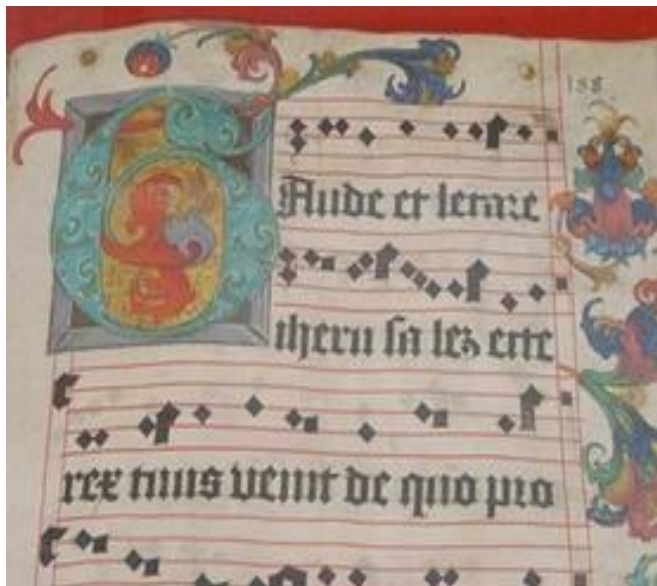 GAude et letare
iheru sa lez ecce
rex tuus venit de quo pro